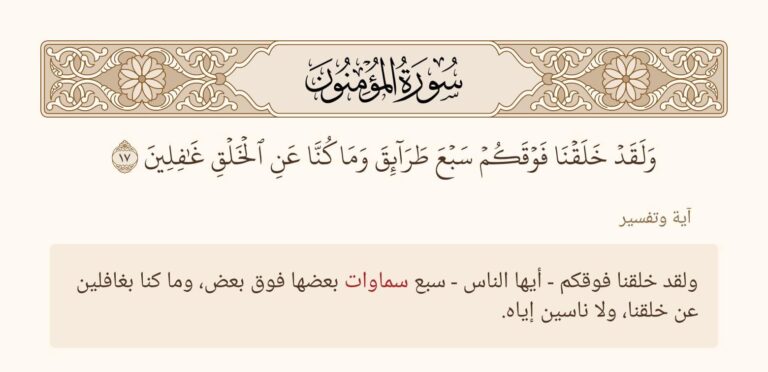 سُورَةُ المُؤْمِنُونَ
وَلَقَدۡ خَلَقۡنَا فَوۡقَكُمۡ سَبۡعَ طَرَآئِقَ وَمَا كُنَّا عَنِ ٱلۡخَلۡقِ غَٰفِلِينَ ١٧
آية وتفسير
ولقد خلقنا فوقكم - أيها الناس - سبع سماوات بعضها فوق بعض، وما كنا بغافلين
عن خلقنا، ولا ناسين إياه.